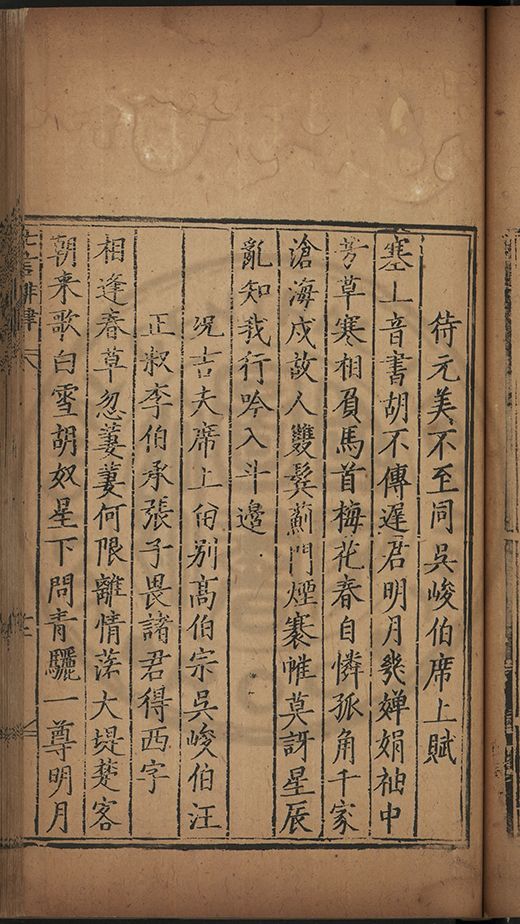 待元美不至同吳峻伯席上賦
塞上音書胡不傳遲君明月幾嬋娟袖中
芳草寒相負馬首梅花春自憐孤角千家
滄海戍故人雙鬂薊門煙褰帷莫訝星辰
亂知我行吟入斗邊
況吉夫席上留别高伯宗吳峻伯汪
正叔李伯承張子畏諸君得西字
相逢春草忽萋萋何限離情落大堤楚客
朝來歌白雪胡奴星下問青驪一尊明月